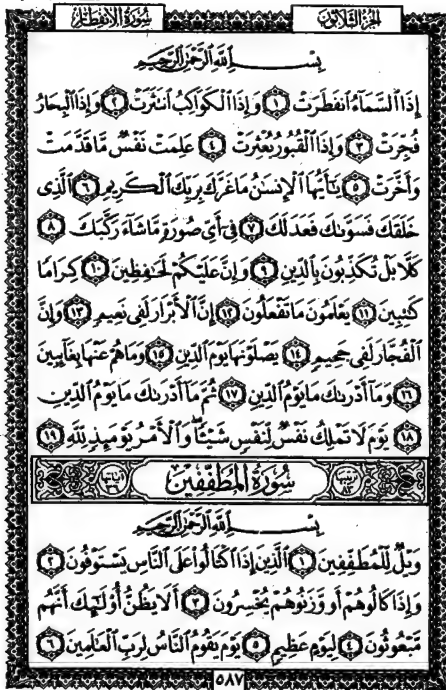 الجزء الثلاثون
سورة الانفطار
بِسْمِ ٱللَّهِ ٱلرَّحْمَٰنِ ٱلرَّحِيمِ
إِذَا ٱلسَّمَآءُ ٱنفَطَرَتْ ١ وَإِذَا ٱلْكَوَاكِبُ ٱنتَثَرَتْ ٢ وَإِذَا ٱلْبِحَارُ
فُجِّرَتْ ٣ وَإِذَا ٱلْقُبُورُ بُعْثِرَتْ ٤ عَلِمَتْ نَفْسٌ مَّا قَدَّمَتْ
وَأَخَّرَتْ ٥ يَٰٓأَيُّهَا ٱلْإِنسَٰنُ مَا غَرَّكَ بِرَبِّكَ ٱلْكَرِيمِ ٦ ٱلَّذِى
خَلَقَكَ فَسَوَّىٰكَ فَعَدَلَكَ ٧ فِىٓ أَىِّ صُورَةٍ مَّا شَآءَ رَكَّبَكَ ٨
كَلَّا بَلْ تُكَذِّبُونَ بِٱلدِّينِ ٩ وَإِنَّ عَلَيْكُمْ لَحَٰفِظِينَ ١٠ كِرَامًا
كَٰتِبِينَ ١١ يَعْلَمُونَ مَا تَفْعَلُونَ ١٢ إِنَّ ٱلْأَبْرَارَ لَفِى نَعِيمٍ ١٣ وَإِنَّ
ٱلْفُجَّارَ لَفِى جَحِيمٍ ١٤ يَصْلَوْنَهَا يَوْمَ ٱلدِّينِ ١٥ وَمَا هُمْ عَنْهَا بِغَآئِبِينَ
١٦ وَمَآ أَدْرَىٰكَ مَا يَوْمُ ٱلدِّينِ ١٧ ثُمَّ مَآ أَدْرَىٰكَ مَا يَوْمُ ٱلدِّينِ
١٨ يَوْمَ لَا تَمْلِكُ نَفْسٌ لِّنَفْسٍ شَيْـًٔا ۖ وَٱلْأَمْرُ يَوْمَئِذٍ لِّلَّهِ ١٩
ترتيبها ٨٣ سُورَةُ المُطَفِّفِينَ آياتها ٣٦
بِسْمِ ٱللَّهِ ٱلرَّحْمَٰنِ ٱلرَّحِيمِ
وَيْلٌ لِّلْمُطَفِّفِينَ ١ ٱلَّذِينَ إِذَا ٱكْتَالُوا۟ عَلَى ٱلنَّاسِ يَسْتَوْفُونَ ٢
وَإِذَا كَالُوهُمْ أَو وَّزَنُوهُمْ يُخْسِرُونَ ٣ أَلَا يَظُنُّ أُو۟لَٰٓئِكَ أَنَّهُم
مَّبْعُوثُونَ ٤ لِيَوْمٍ عَظِيمٍ ٥ يَوْمَ يَقُومُ ٱلنَّاسُ لِرَبِّ ٱلْعَٰلَمِينَ ٦
٥٨٧